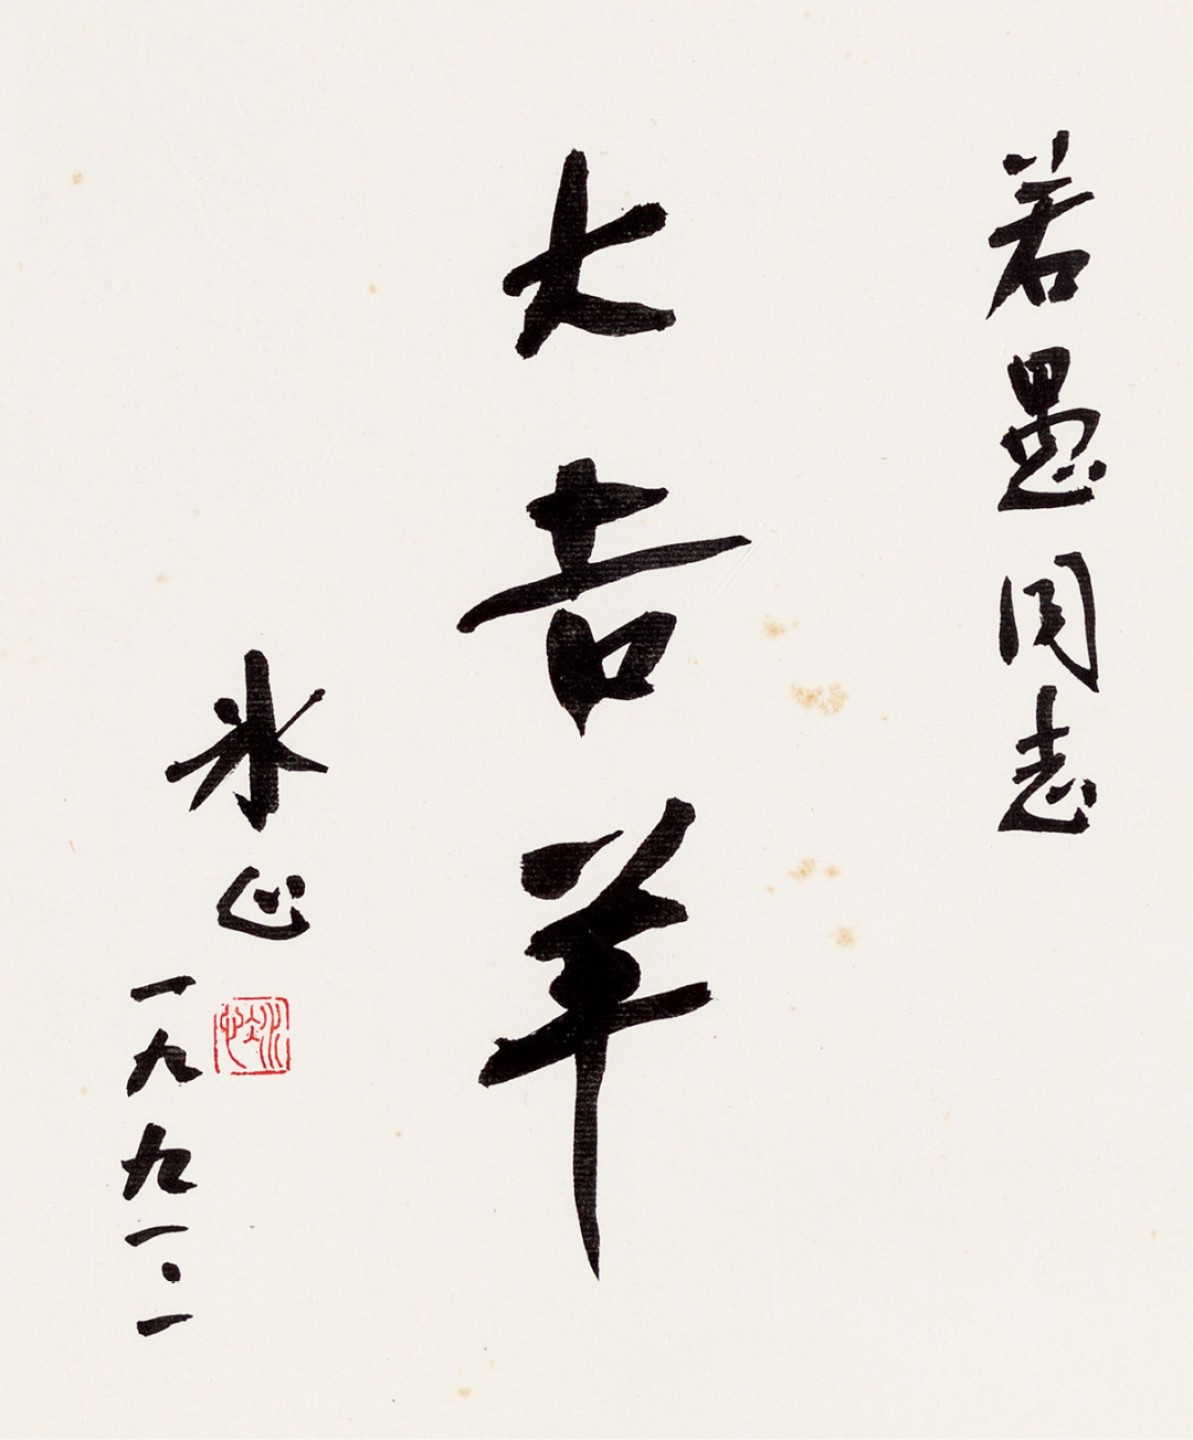 若愚同志
大吉羊
冰心
一九九一·一
冰心